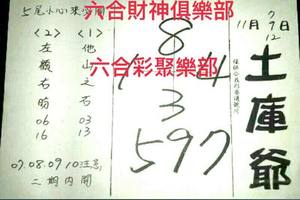 五尾小心來愛開
六合財神俱樂部
六合彩聚樂部
<1>
他山之石
03
13
<2>
左嶺右明
06
16
07.08.09 10注意
二期內開
8
1 4
3
597
11月 7
9
12
土庫爺